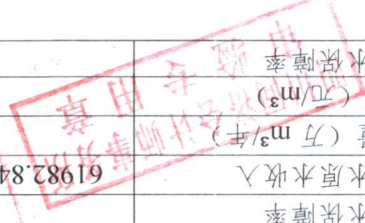 水保障率
水原水收入 61982.84
量（万 m³/年）
（元/m³）
水保障率
会计师事务所
专用章